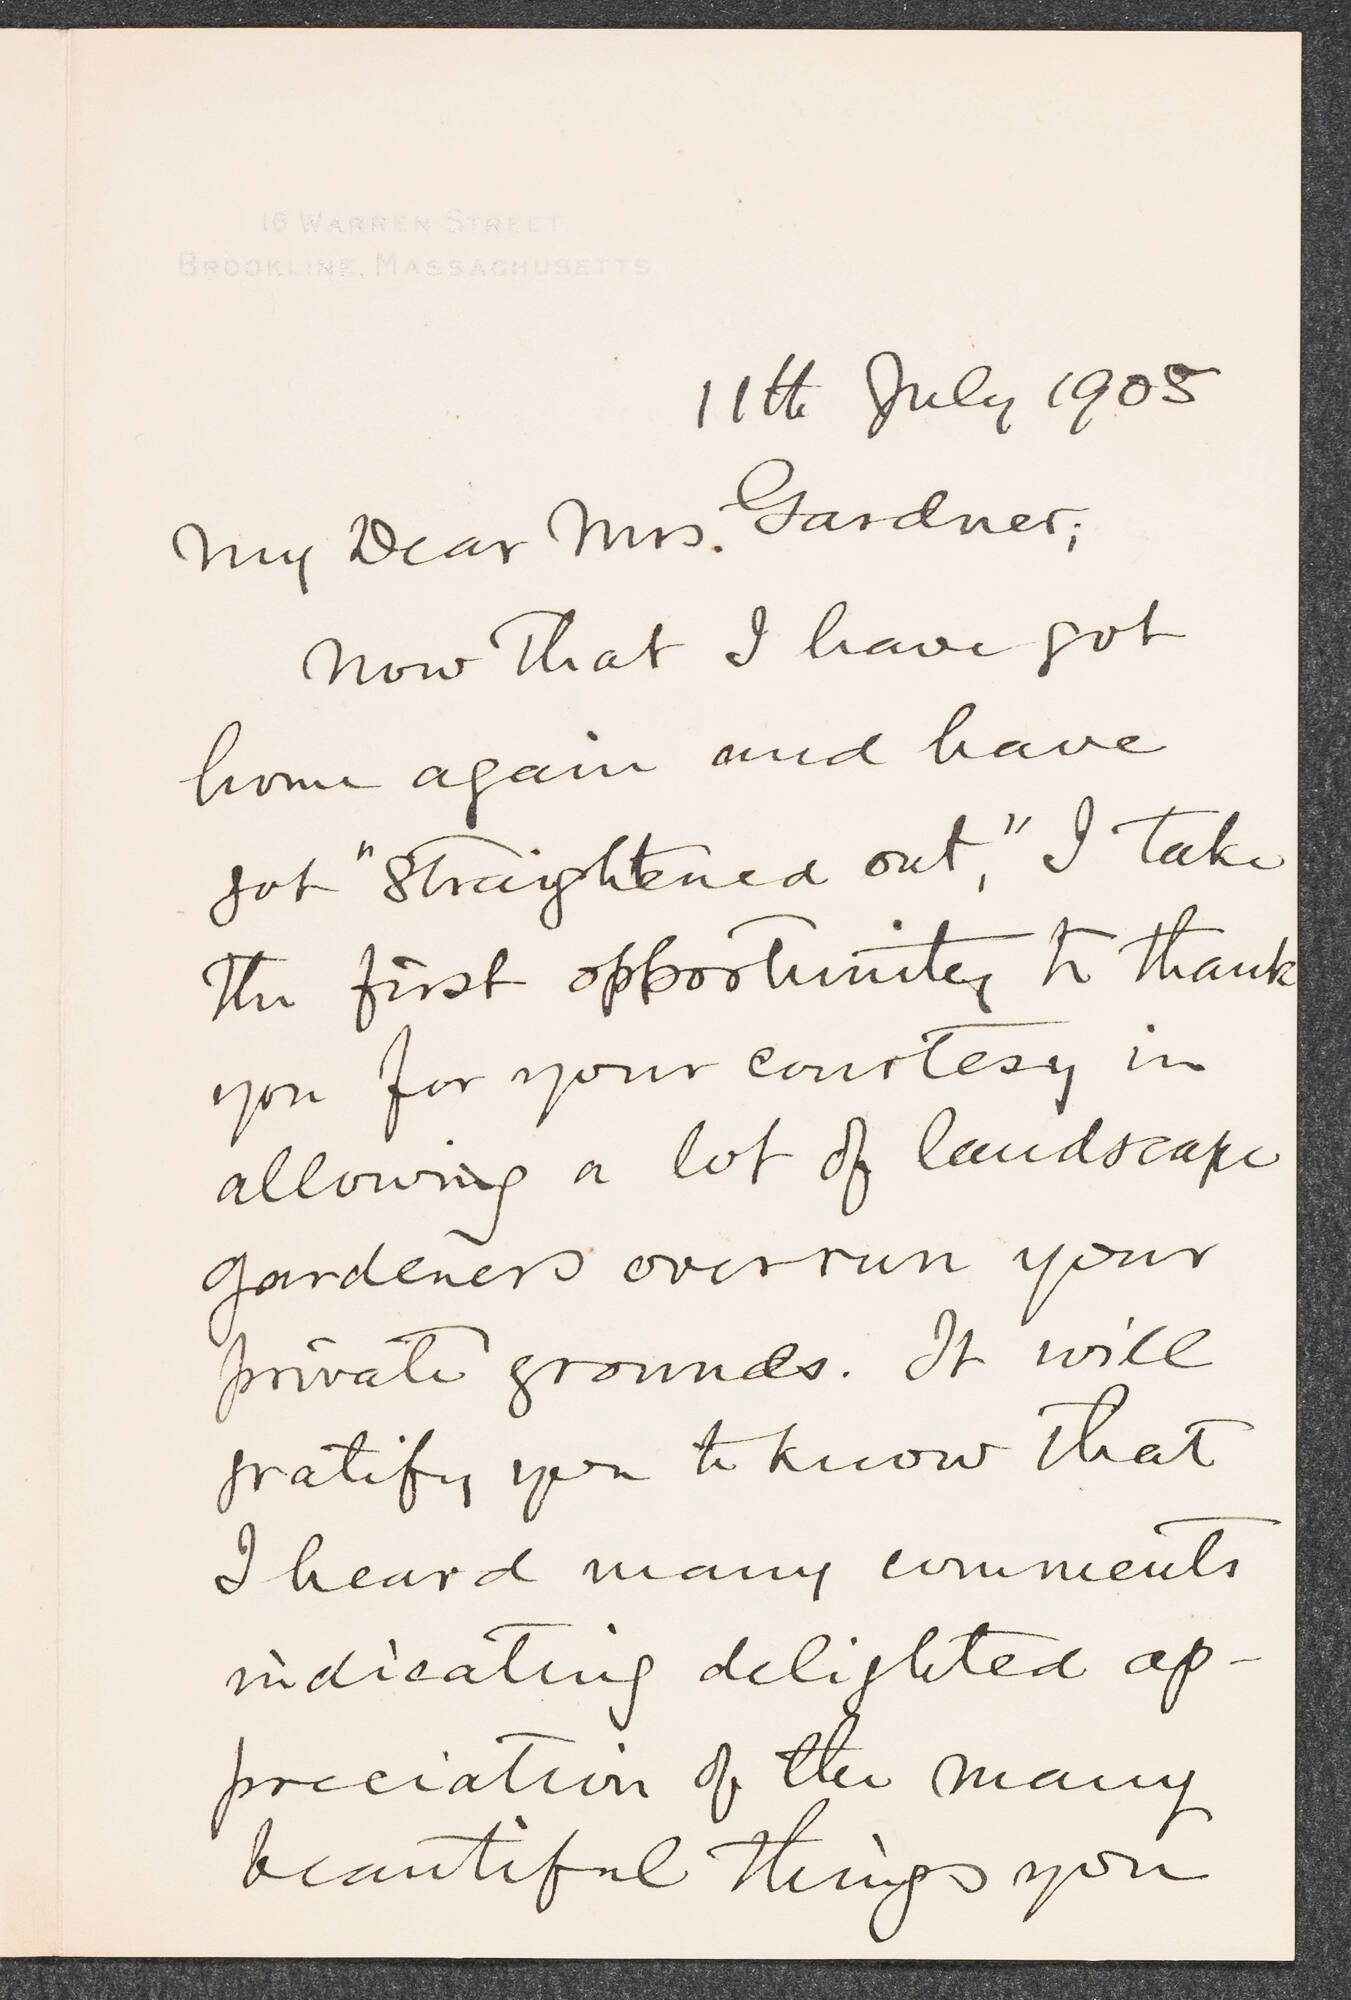 16 WARREN STREET.
BROOKLINE, MASSACHUSETTS
11th July 1905
My Dear Mrs. Gardner;
Now that I have got
home again and have
got "straightened out," I take
the first opportunity to thank
you for your courtesy in
allowing a lot of landscape
gardeners overrun your
private grounds. It will
gratify you to know that
I heard many comments
indicating delighted ap-
preciation of the many
beautiful things you